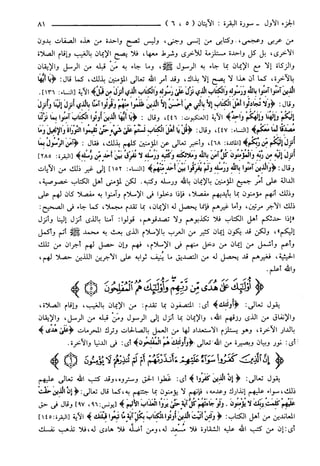 الجزء الأول - سورة البقرة: الآيتان (٥، ٦) ٨١
من عربي وعجمي، وكتابي من إنسي وجني، وليس تصح واحدة من هذه الصفات بدون
الأخرى، بل كل واحدة مستلزمة للأخرى وشرط معها، فلا يصح الإيمان بالغيب وإقام الصلاة
والزكاة إلا مع الإيمان بما جاء به الرسول ﷺ، وما جاء به مَن قبله من الرسل والإيقان
بالآخرة، كما أن هذا لا يصح إلا بذاك، وقد أمر الله تعالى المؤمنين بذلك، كما قال: ﴿يا أيها
الذين آمنوا آمنوا بالله ورسوله والكتاب الذي نزل على رسوله والكتاب الذي أنزل من قبل﴾ الآية [النساء: ١٣٦].
وقال: ﴿ولا تجادلوا أهل الكتاب إلا بالتي هي أحسن إلا الذين ظلموا منهم وقولوا آمنا بالذي أنزل إلينا وأنزل
إليكم وإلهنا وإلهكم واحد﴾ الآية [العنكبوت: ٤٦]، وقال: ﴿يا أيها الذين أوتوا الكتاب آمنوا بما نزلنا
مصدقا لما معكم﴾ [النساء: ٤٧]، وقال: ﴿قل يا أهل الكتاب لستم على شيء حتى تقيموا التوراة والإنجيل وما
أنزل إليكم من ربكم﴾ [المائدة: ٦٨]، وأخبر تعالى عن المؤمنين كلهم بذلك، فقال: ﴿آمن الرسول بما
أنزل إليه من ربه والمؤمنون كل آمن بالله وملائكته وكتبه ورسله لا نفرق بين أحد من رسله﴾ [البقرة: ٢٨٥]
وقال: ﴿والذين آمنوا بالله ورسله ولم يفرقوا بين أحد منهم﴾ [النساء: ١٥٢] إلى غير ذلك من الآيات
الدالة على أمر جميع المؤمنين بالإيمان بالله ورسله وكتبه. لكن لمؤمني أهل الكتاب خصوصية،
وذلك أنهم مؤمنون بما بأيديهم مفصلا، فإذا دخلوا في الإسلام وآمنوا به مفصلا كان لهم على
ذلك الأجر مرتين، وأما غيرهم فإنما يحصل له الإيمان، بما تقدم مجملا، كما جاء في الصحيح:
«إذا حدثكم أهل الكتاب فلا تكذبوهم ولا تصدقوهم، ولكن قولوا: آمنا بالذي أنزل إلينا وأنزل
إليكم»، ولكن قد يكون إيمان كثير من العرب بالإسلام الذي بعث به محمد ﷺ أتم وأكمل
وأعم وأشمل من إيمان من دخل منهم في الإسلام، فهم وإن حصل لهم أجران من تلك
الحيثية، فغيرهم قد يحصل له من التصديق ما يُنيف ثوابه على الأجرين اللذين حصلا لهم،
والله أعلم.
﴿أولئك على هدى من ربهم وأولئك هم المفلحون﴾
يقول تعالى: ﴿أولئك﴾ أي: المتصفون بما تقدم: من الإيمان بالغيب، وإقام الصلاة،
والإنفاق من الذي رزقهم الله، والإيمان بما أنزل إلى الرسول ومَن قبله من الرسل، والإيقان
بالدار الآخرة، وهو يستلزم الاستعداد لها من العمل بالصالحات وترك المحرمات ﴿على هدى﴾
أي: نور وبيان وبصيرة من الله تعالى ﴿وأولئك هم المفلحون﴾ أي: في الدنيا والآخرة.
﴿إن الذين كفروا سواء عليهم أأنذرتهم أم لم تنذرهم لا يؤمنون﴾
يقول تعالى: ﴿إن الذين كفروا﴾ أي: غطوا الحق وستروه، وقد كتب الله تعالى عليهم
ذلك، سواء عليهم إنذارك وعدمه، فإنهم لا يؤمنون بما جئتهم به، كما قال تعالى: ﴿إن الذين حقت
عليهم كلمت ربك لا يؤمنون ولو جاءتهم كل آية حتى يروا العذاب الأليم﴾ [يونس: ٩٦، ٩٧] وقال في حق
المعاندين من أهل الكتاب: ﴿ولئن أتيت الذين أوتوا الكتاب بكل آية ما تبعوا قبلتك﴾ الآية [البقرة: ١٤٥]
أي: إن من كتب الله عليه الشقاوة فلا مُسعد له، ومن أضلّه فلا هادي له، فلا تذهب نفسك